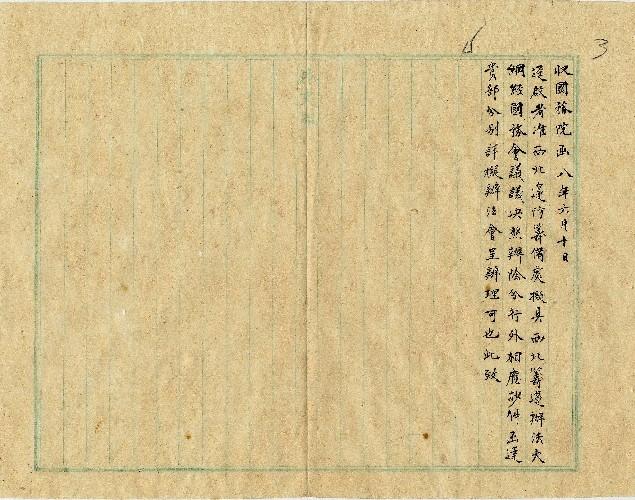 3
收國務院函 八年六月十日
逕啟者准西北邊防籌備處擬具西北籌邊辦法大
綱經國務會議議決照辦除分行外相應抄件函達
貴部分別詳擬辦法會呈辦理可也此致